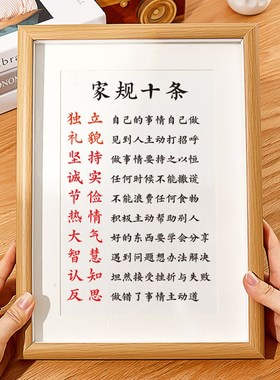 家规十条
独立 自己的事情自己做
礼貌 见到人主动打招呼
坚持 做事情要持之以恒
诚实 任何时候不能撒谎
节俭 不能浪费任何食物
热情 积极主动帮助别人
大气 好的东西要学会分享
智慧 遇到问题想办法解决
认知 坦然接受挫折与失败
反思 做错了事情主动道